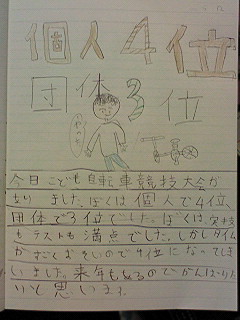 個人4位
団体3位
今日こども自転車競技大会が
ありました。ぼくは個人で4位、
団体で3位でした。ぼくは、実技
もテストも満点でした。しかしタイム
がおそいので4位になってしま
いました。来年もあるのでがんばりた
いと思います。